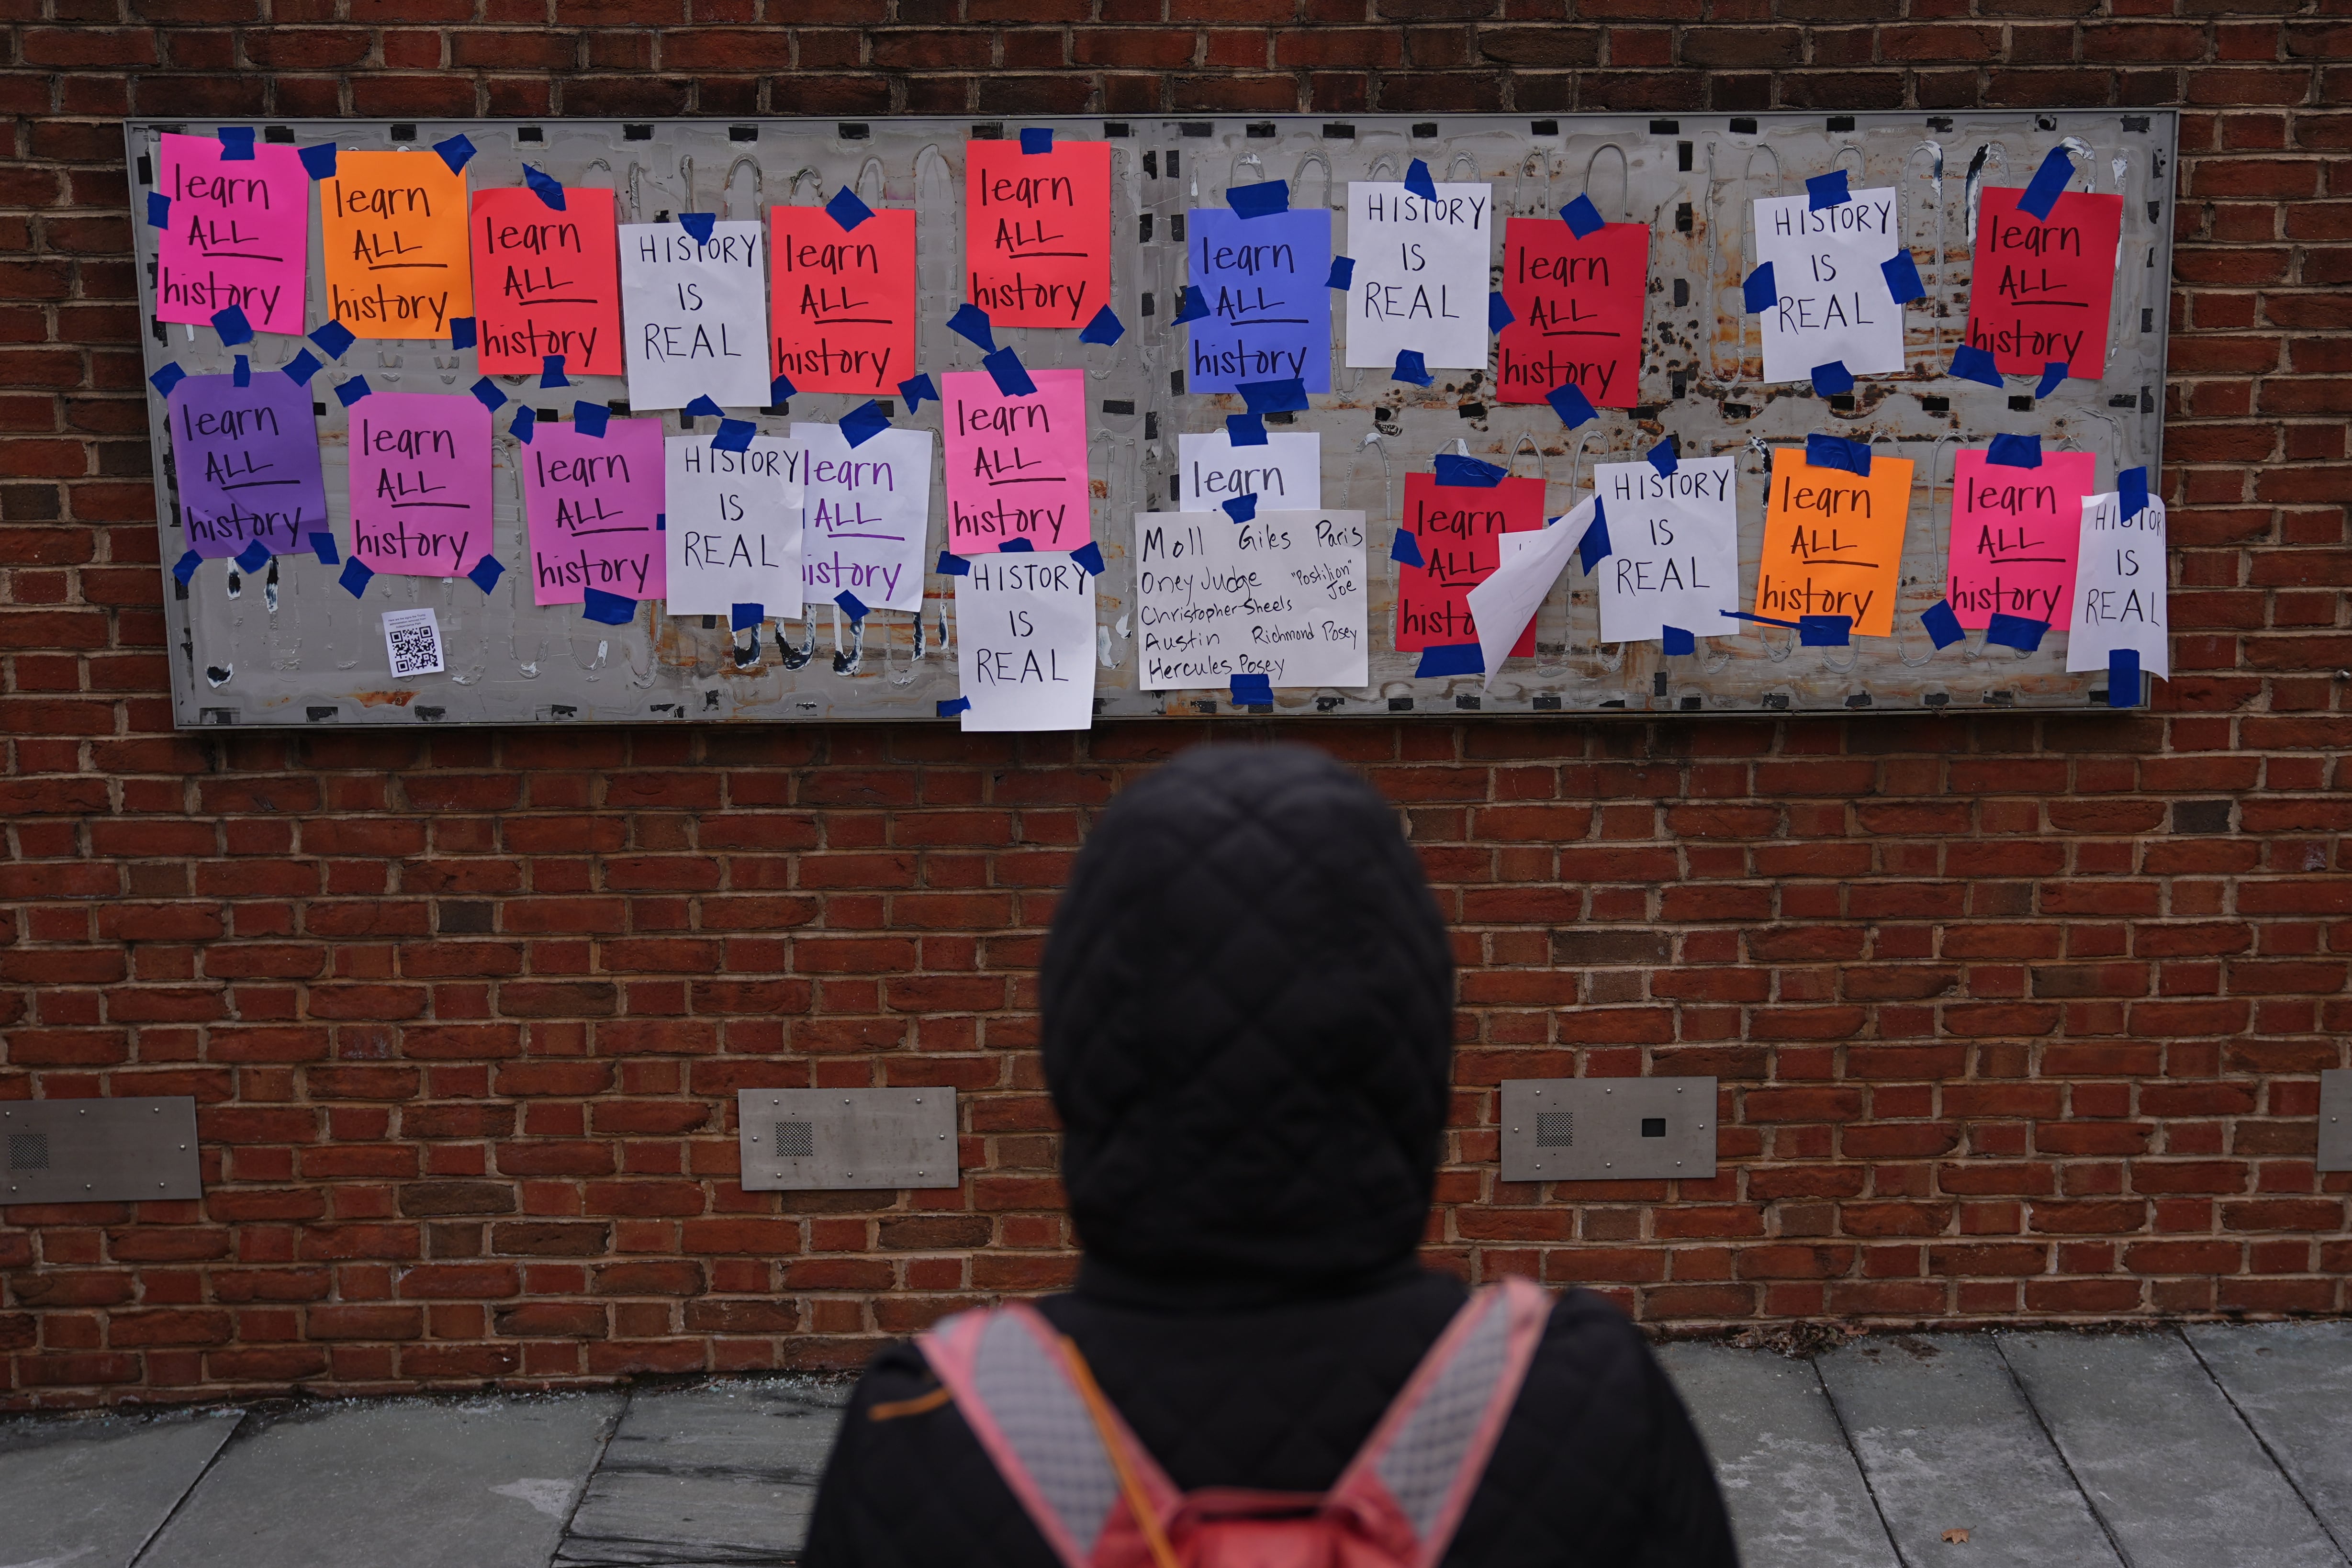 learn
ALL
history
learn
ALL
history
learn
ALL
history
HISTORY
IS
REAL
learn
ALL
history
learn
ALL
history
learn
ALL
history
HISTORY
IS
REAL
learn
ALL
history
HISTORY
IS
REAL
learn
ALL
history
learn
ALL
history
learn
ALL
history
learn
ALL
history
HISTORY
IS
REAL
learn
ALL
history
learn
ALL
history
HISTORY
IS
REAL
learn
Moll Giles Paris
Oney Judge "Postilion" Joe
Christopher Sheels
Austin Richmond Posey
Hercules Posey
learn
ALL
histo
HISTORY
IS
REAL
learn
ALL
history
learn
ALL
history
HISTOR
IS
REAL